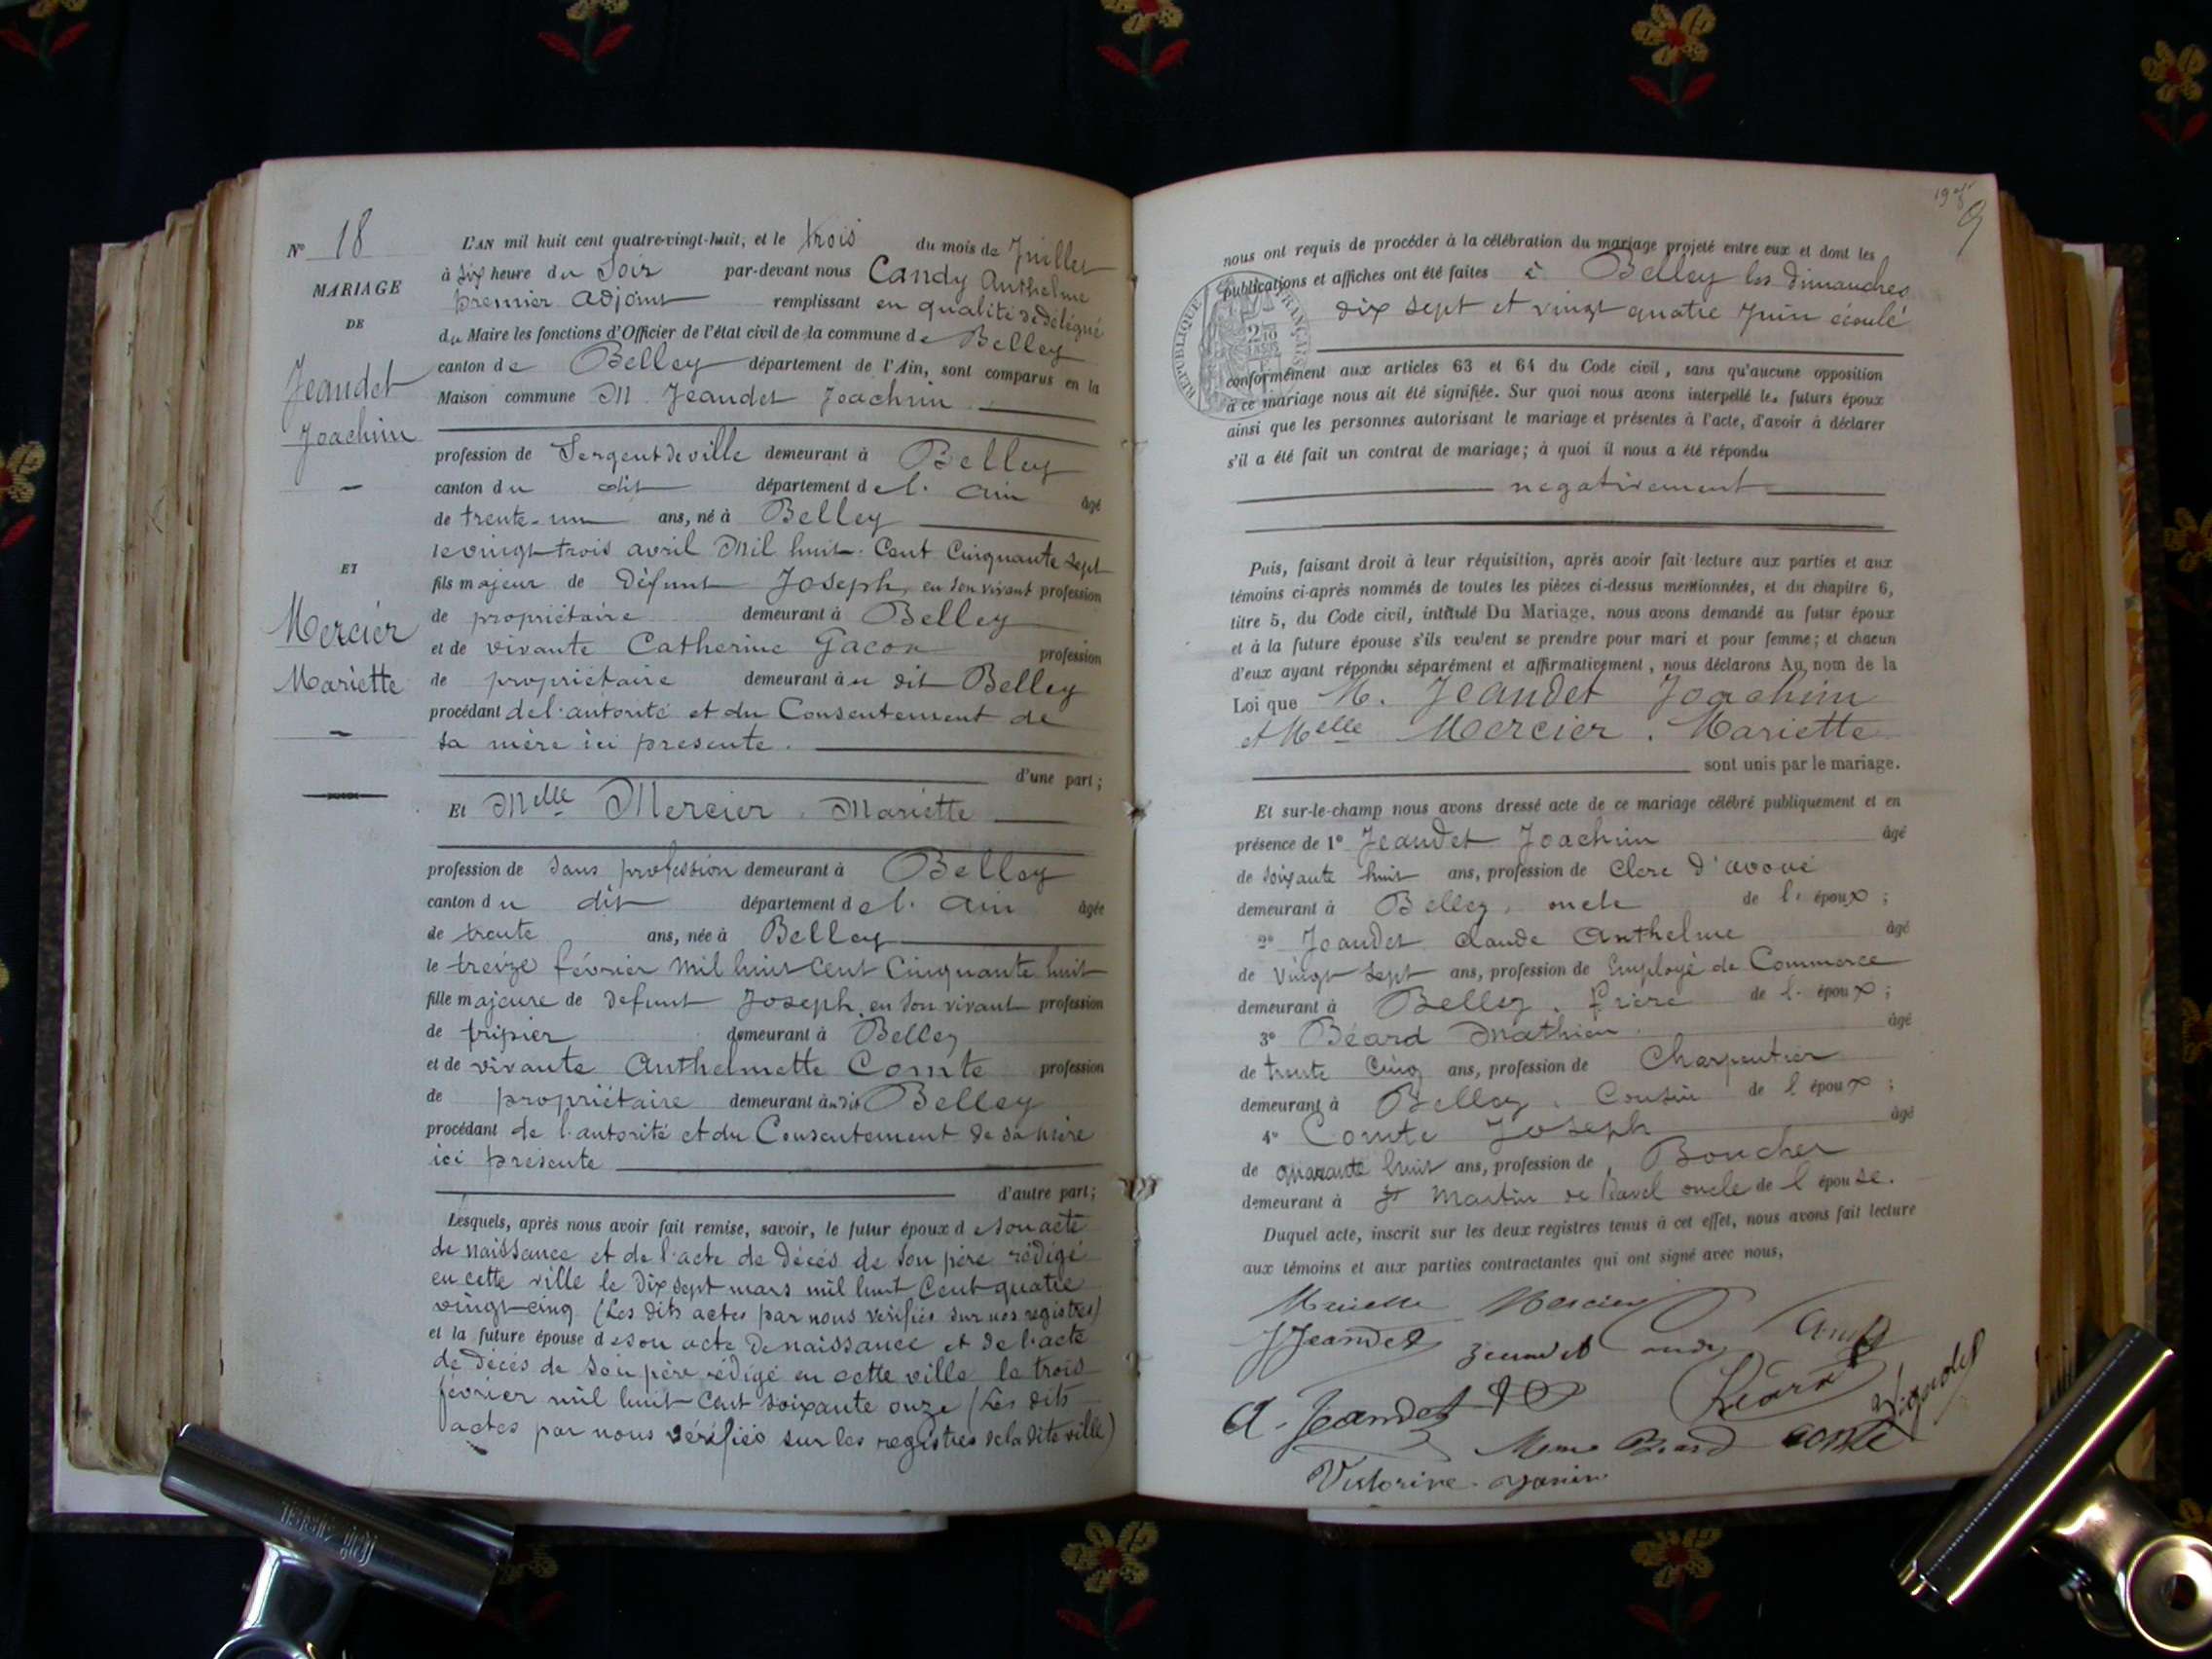 N° 18
MARIAGE
DE
Jeaudet
Joachim
ET
Mercier
Mariette
L'AN mil huit cent quatre-vingt-huit, et le trois du mois de Juillet
à six heure du Soir par-devant nous Candy Anthelme
premier adjoint remplissant en qualité de délégué
du Maire les fonctions d'Officier de l'état civil de la commune de Belley
canton de Belley département de l'Ain, sont comparus en la
Maison commune M. Jeaudet Joachim
profession de Sergent de ville demeurant à Belley
canton du dit département de l'Ain âgé
de trente-un ans, né à Belley
le vingt trois avril Mil huit Cent Cinquante sept
fils majeur de Défunt Joseph, en son vivant profession
de propriétaire demeurant à Belley
et de vivante Catherine Gacon profession
de propriétaire demeurant au dit Belley
procédant de l'autorité et du Consentement de
sa mère ici présente.
d'une part;
Et Melle Mercier Mariette
profession de sans profession demeurant à Belley
canton du dit département de l'Ain âgée
de trente ans, née à Belley
le treize février mil huit cent Cinquante huit
fille majeure de defunt Joseph, en son vivant profession
de tripier demeurant à Belley
et de vivante Anthelmette Comte profession
de propriétaire demeurant au dit Belley
procédant de l'autorité et du Consentement de sa mère
ici présente
d'autre part;
Lesquels, après nous avoir fait remise, savoir, le futur époux de son acte
de naissance et de l'acte de décés de son père rédigé
en cette ville le dix sept mars mil huit Cent quatre
vingt-cinq (Les dits actes par nous vérifiés sur nos registres)
et la future épouse de son acte de naissance et de l'acte
de décés de son père rédigé en cette ville le trois
février mil huit Cent soixante onze (Les dits
actes par nous vérifiés sur les registres de la dite ville)
9
nous ont requis de procéder à la célébration du mariage projeté entre eux et dont les
publications et affiches ont été faites à Belley les dimanches
dix sept et vingt quatre Juin écoulé
RÉPUBLIQUE FRANÇAISE
conformément aux articles 63 et 64 du Code civil, sans qu'aucune opposition
à ce mariage nous ait été signifiée. Sur quoi nous avons interpellé les futurs époux
ainsi que les personnes autorisant le mariage et présentes à l'acte, d'avoir à déclarer
s'il a été fait un contrat de mariage; à quoi il nous a été répondu
negativement
Puis, faisant droit à leur réquisition, après avoir fait lecture aux parties et aux
témoins ci-après nommés de toutes les pièces ci-dessus mentionnées, et du chapitre 6,
titre 5, du Code civil, intitulé Du Mariage, nous avons demandé au futur époux
et à la future épouse s'ils veulent se prendre pour mari et pour femme; et chacun
d'eux ayant répondu séparément et affirmativement, nous déclarons Au nom de la
Loi que M. Jeaudet Joachim
et Melle Mercier. Mariette
sont unis par le mariage.
Et sur-le-champ nous avons dressé acte de ce mariage célébré publiquement et en
présence de 1° Jeaudet Joachim âgé
de soixante huit ans, profession de Clerc d'avoué
demeurant à Belley, oncle de l'époux;
2° Jeaudet Claude Anthelme âgé
de vingt sept ans, profession de Employé de Commerce
demeurant à Belley. frère de l'époux;
3° Béard Mathieu âgé
de trente Cinq ans, profession de Charpentier
demeurant à Belley. Cousin de l'époux;
4° Comte Joseph âgé
de quarante huit ans, profession de Boucher
demeurant à St Martin de Bavel oncle de l'épouse.
Duquel acte, inscrit sur les deux registres tenus à cet effet, nous avons fait lecture
aux témoins et aux parties contractantes qui ont signé avec nous,
Mariette Mercier
JJeandet Jeandet Candy
A. Jeandet Béard
Mme Béard Comte
Victorine